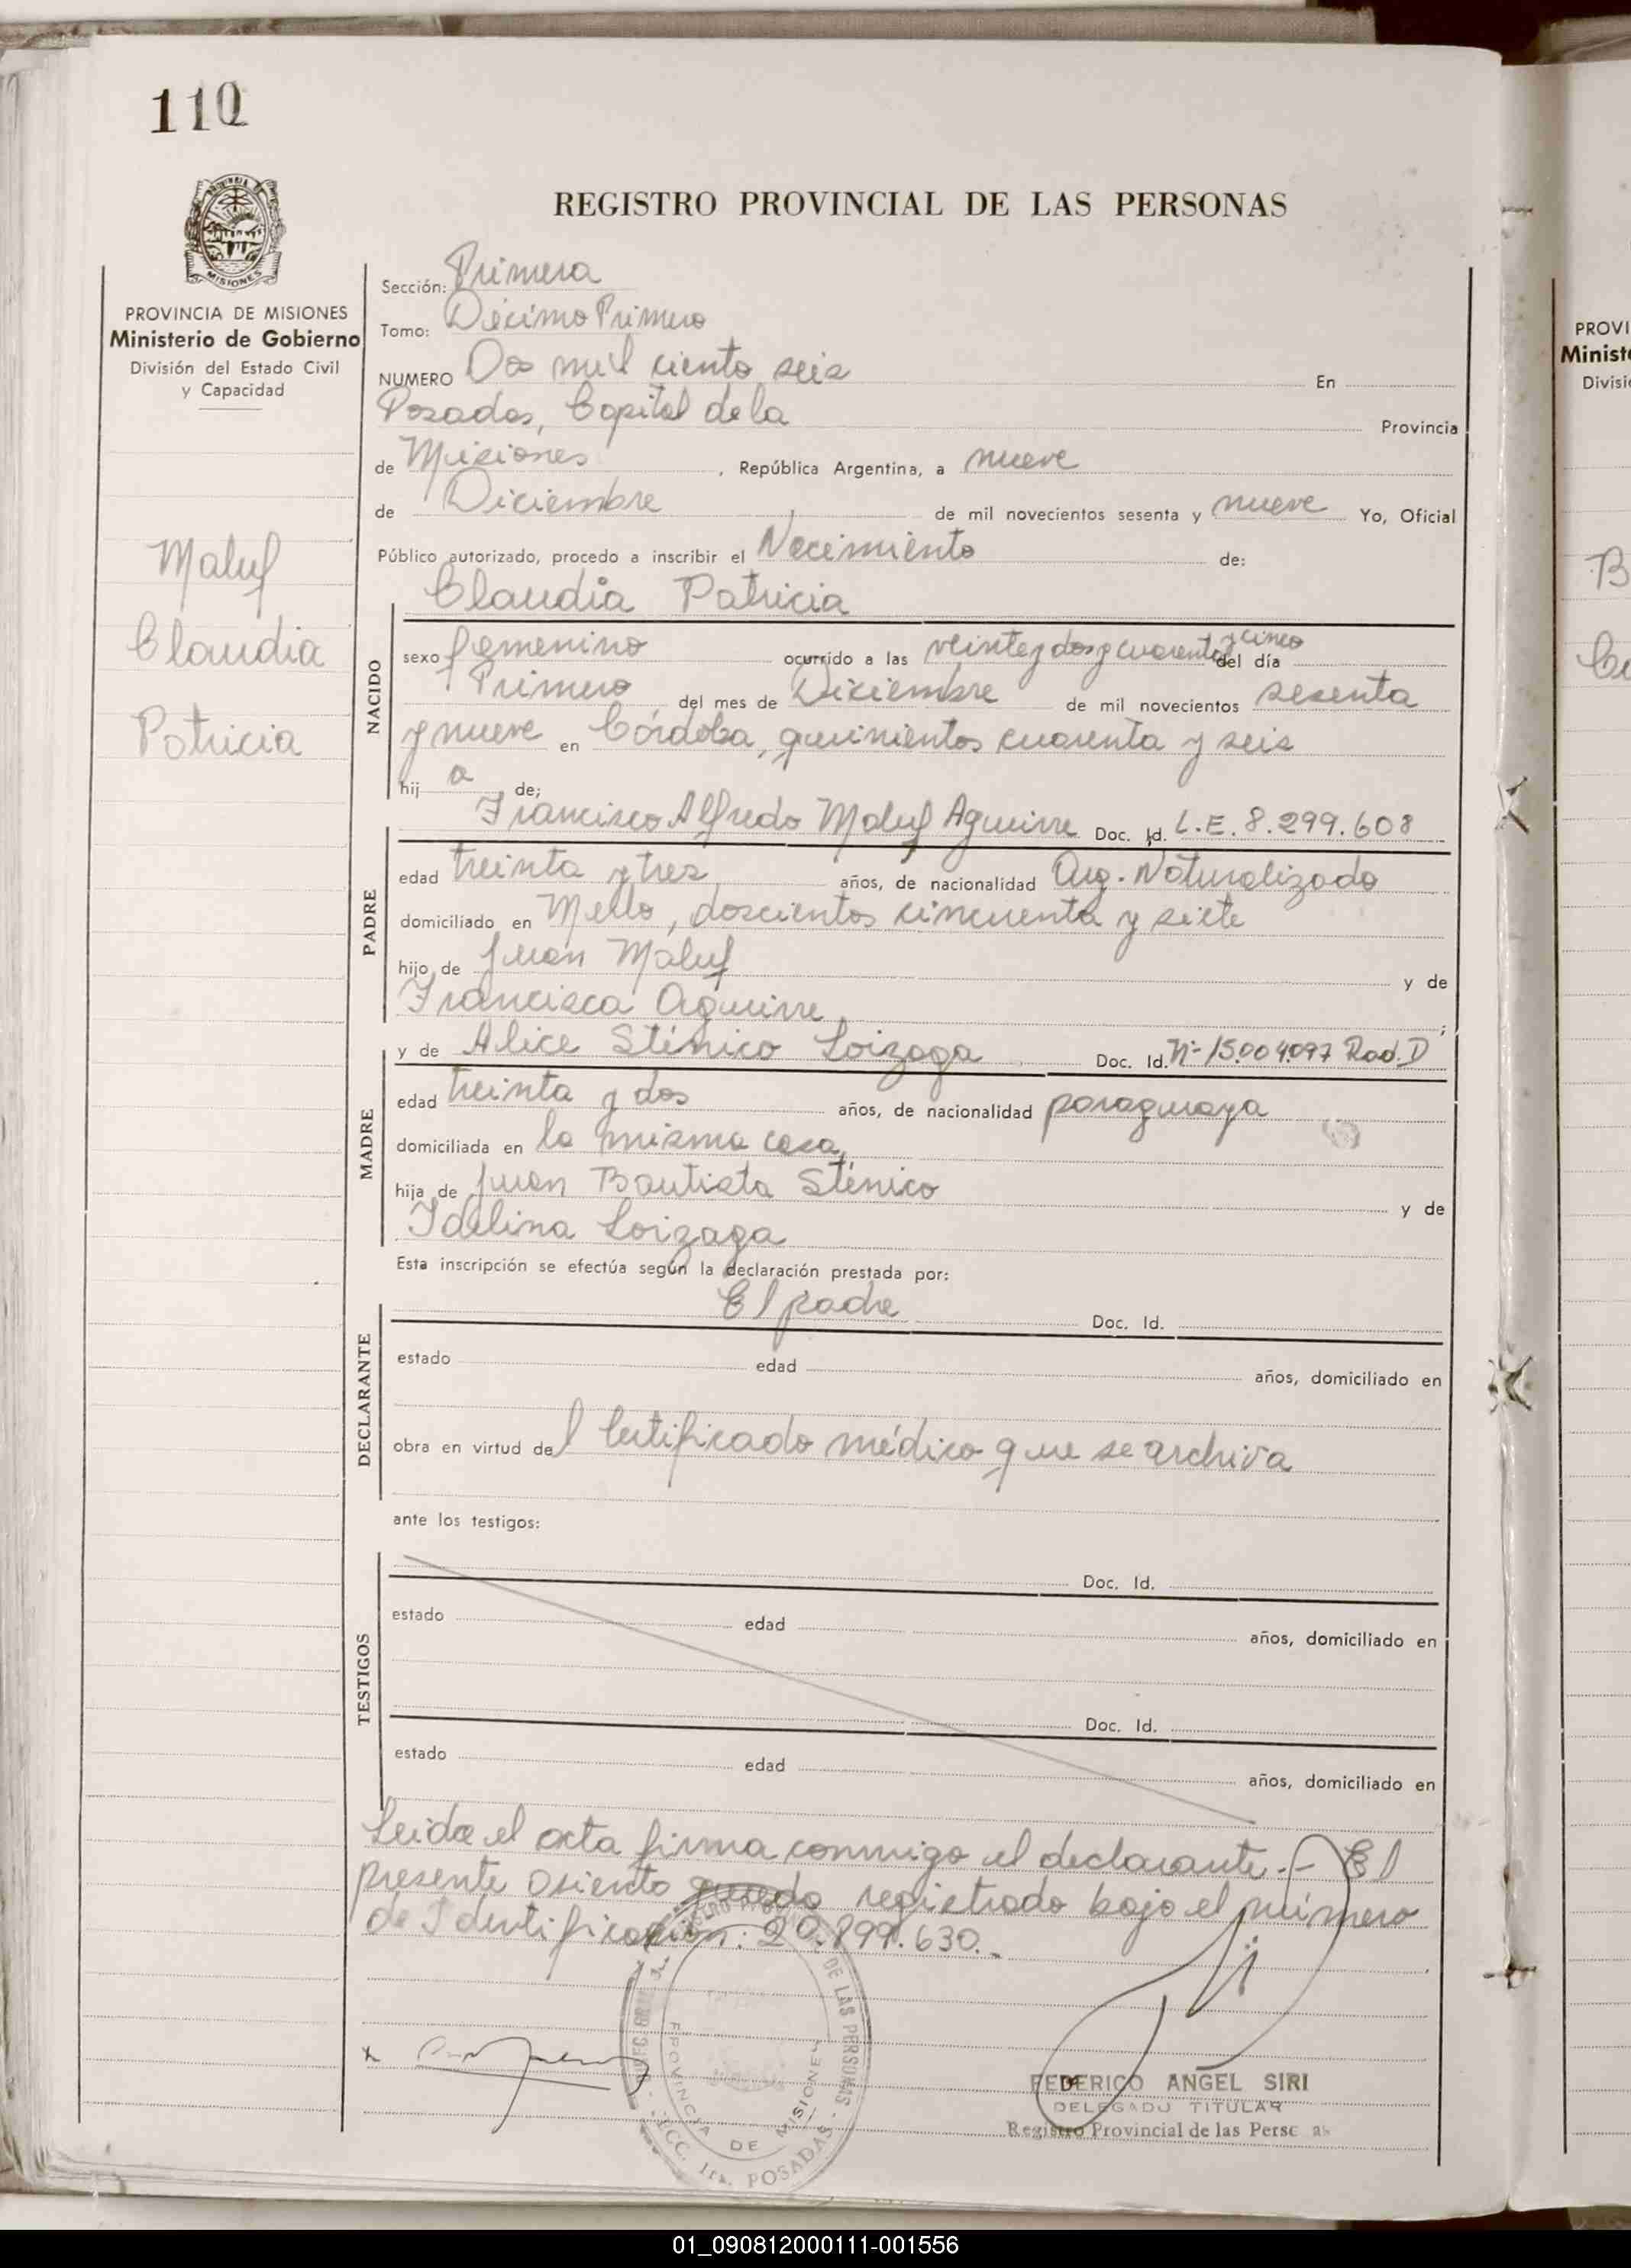 110
MISIONES
PROVINCIA DE MISIONES
Ministerio de Gobierno
División del Estado Civil
y Capacidad
Maluf
Claudia
Patricia
REGISTRO PROVINCIAL DE LAS PERSONAS
Sección: Primera
Tomo: Décimo Primero
NUMERO Dos mil ciento seis En
Posadas, Capital de la Provincia
de Misiones, República Argentina, a nueve
de Diciembre de mil novecientos sesenta y nueve Yo, Oficial
Público autorizado, procedo a inscribir el Nacimiento de:
Claudia Patricia
NACIDO
sexo femenino ocurrido a las veinte y dos y cuarenta y cinco del día
Primero del mes de Diciembre de mil novecientos sesenta
y nueve en Córdoba, quinientos cuarenta y seis
hij a de;
Francisco Alfredo Maluf Aguirre Doc. Id. L.E. 8.299.608
PADRE
edad treinta y tres años, de nacionalidad Arg. Naturalizado
domiciliado en Mello, doscientos cincuenta y siete
hijo de Juan Maluf y de
Francisca Aguirre ;
y de Alice Sténico Loizaga Doc. Id. Nº 15.004.097 Rad. D
MADRE
edad treinta y dos años, de nacionalidad paraguaya
domiciliada en la misma casa,
hija de Juan Bautista Sténico y de
Idelina Loizaga
Esta inscripción se efectúa según la declaración prestada por:
El padre Doc. Id.
DECLARANTE
estado edad años, domiciliado en
obra en virtud del Certificado médico que se archiva
ante los testigos:
Doc. Id.
TESTIGOS
estado edad años, domiciliado en
Doc. Id.
estado edad años, domiciliado en
Leida el acta firma conmigo el declarante.- El
presente asiento queda registrado bajo el número
de Identificación: 20.899.630.-
DE LAS PERSONAS
PROVINCIA DE MISIONES
SECC. 1ra. POSADAS
FEDERICO ANGEL SIRI
DELEGADO TITULAR
Registro Provincial de las Perse as
PROVI
Minist
Divisi
B
01_090812000111-001556